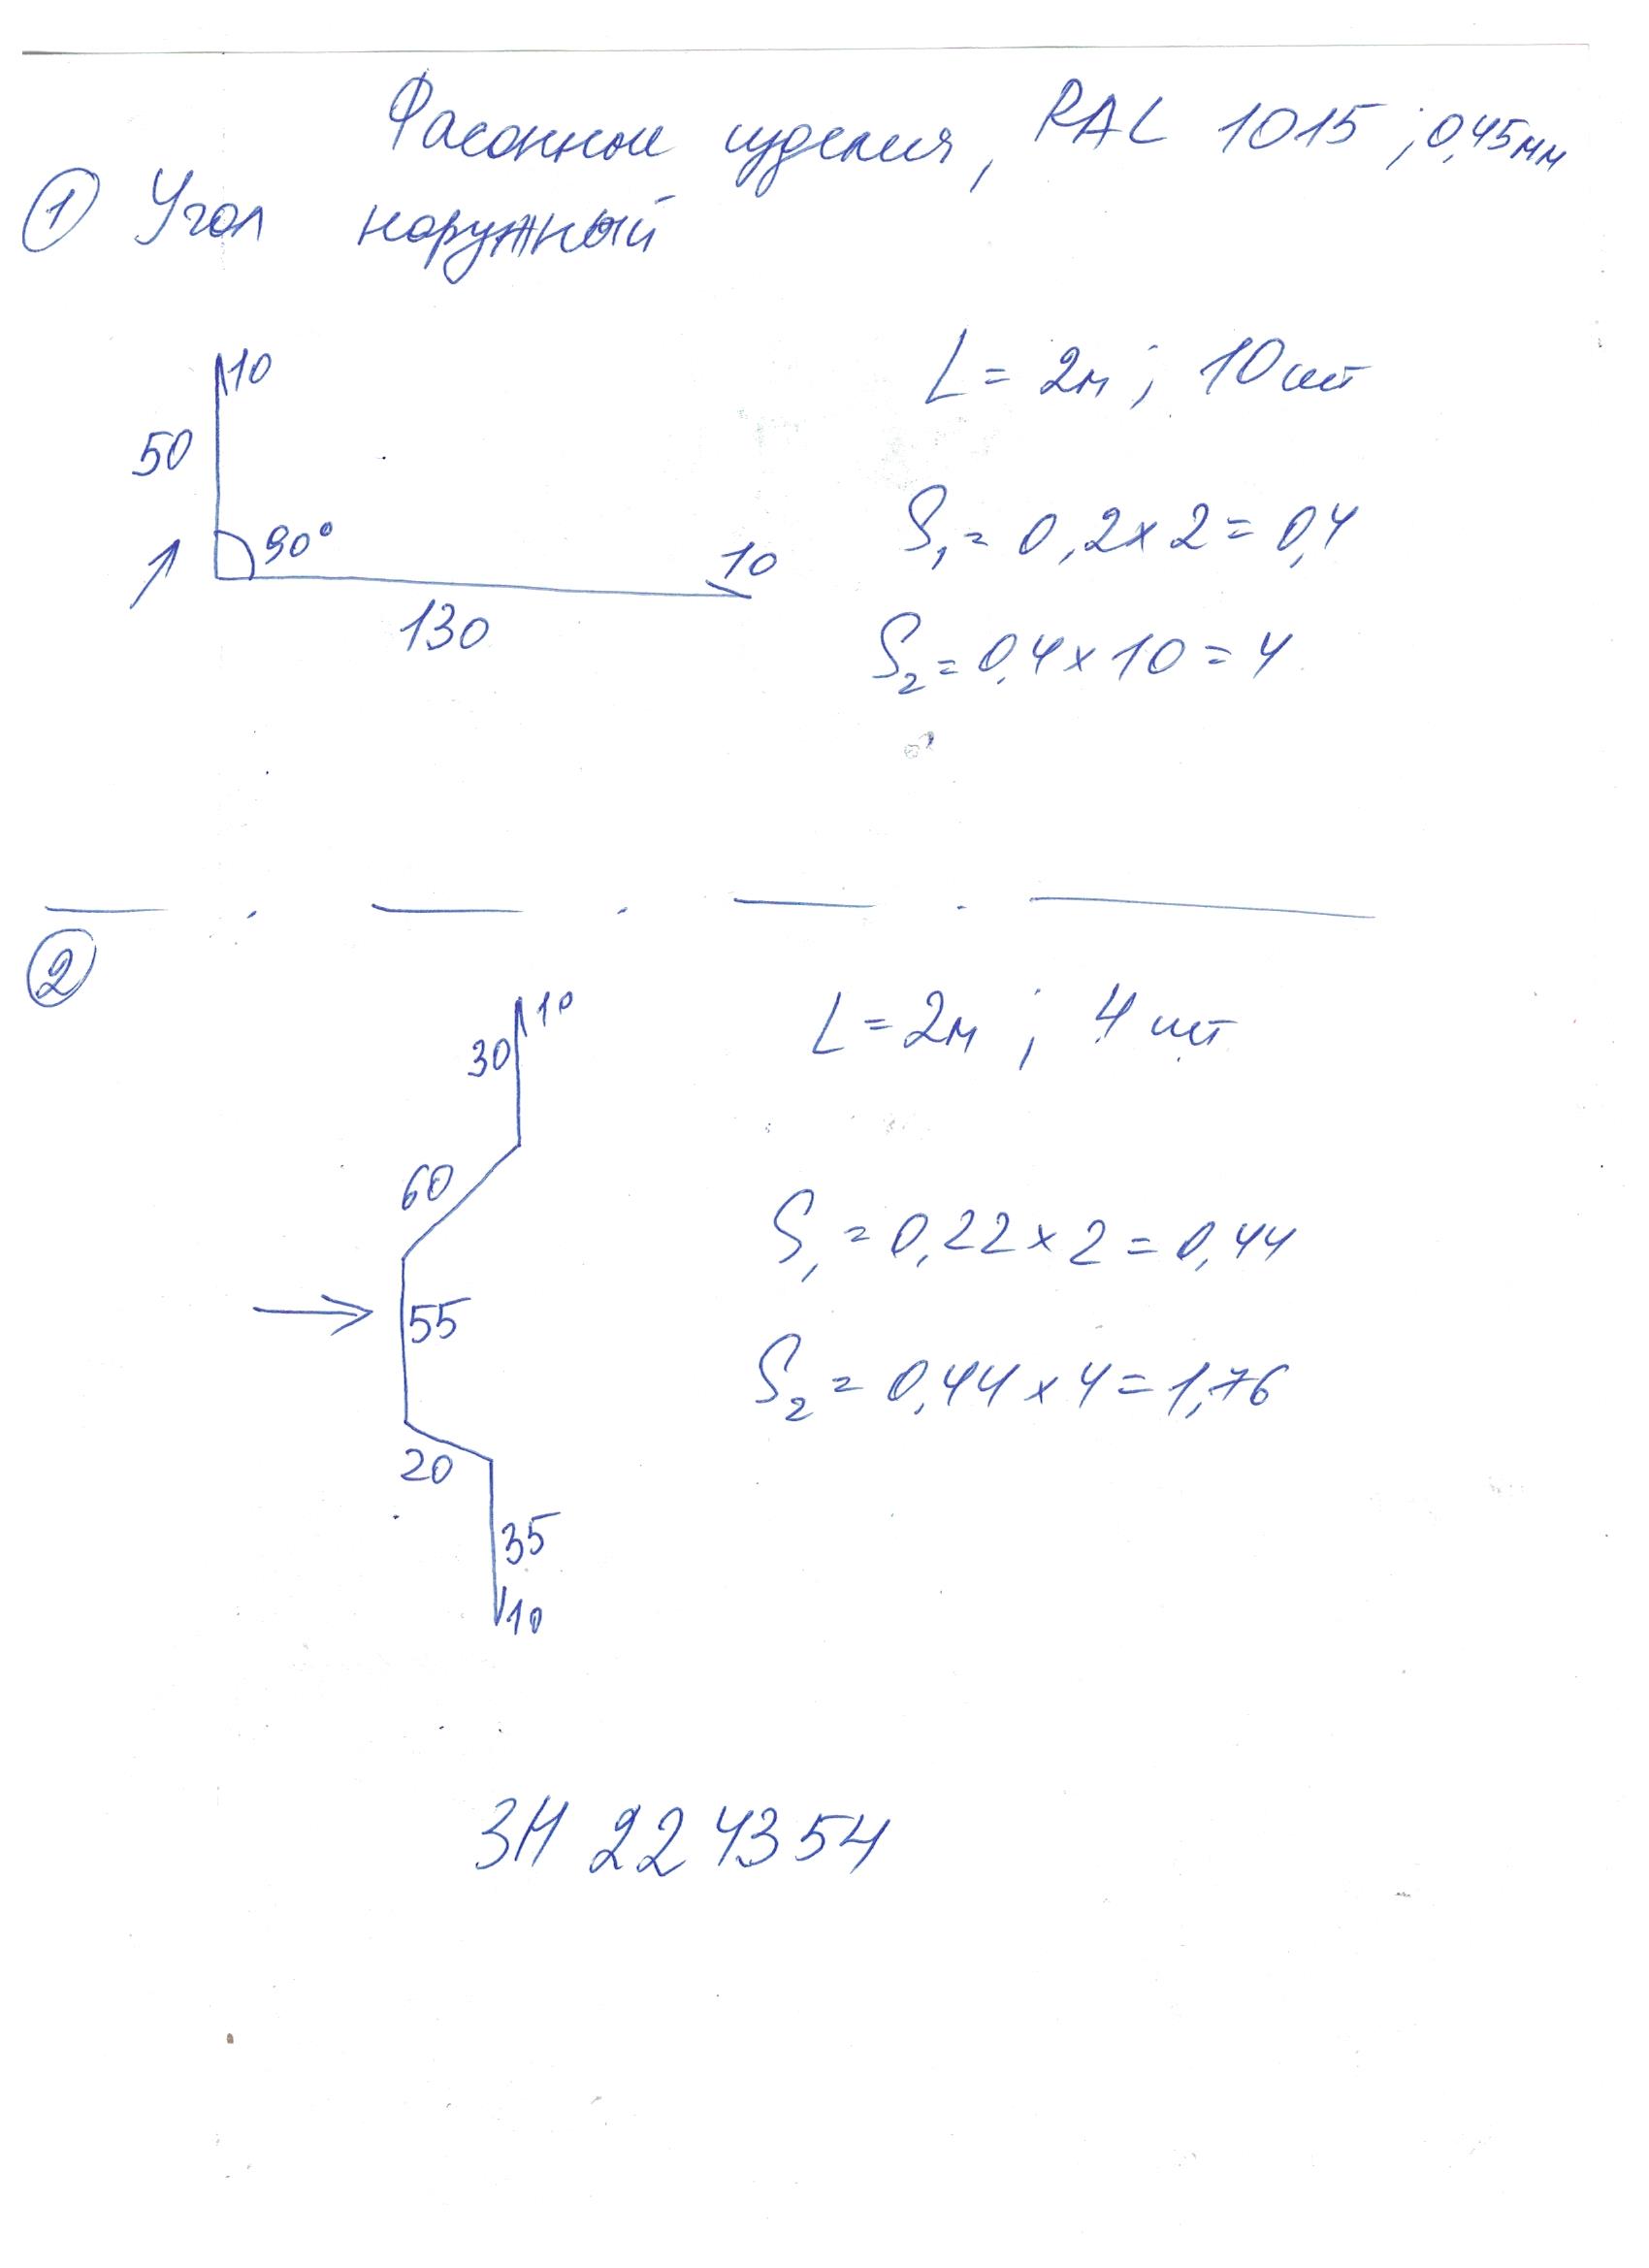 Фасонные изделия, RAL 1015; 0,45мм
① Угол наружный
10
50
90°
10
130
L = 2м; 10шт
S₁ = 0,2 x 2 = 0,4
S₂ = 0,4 x 10 = 4
②
10
30
60
55
20
35
10
L = 2м; 4 шт
S₁ = 0,22 x 2 = 0,44
S₂ = 0,44 x 4 = 1,76
ЗН 224354